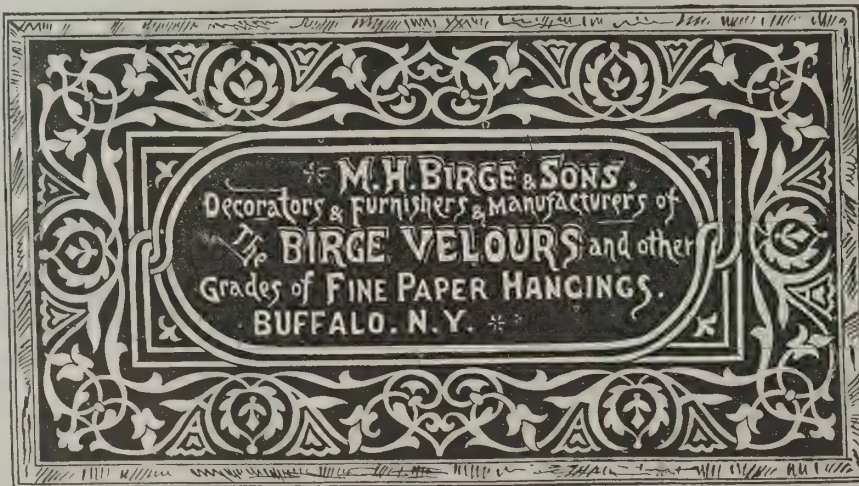 M.H. BIRGE & SONS,
Decorators & Furnishers & Manufacturers of
The BIRGE VELOURS and other
Grades of FINE PAPER HANGINGS.
BUFFALO. N.Y.